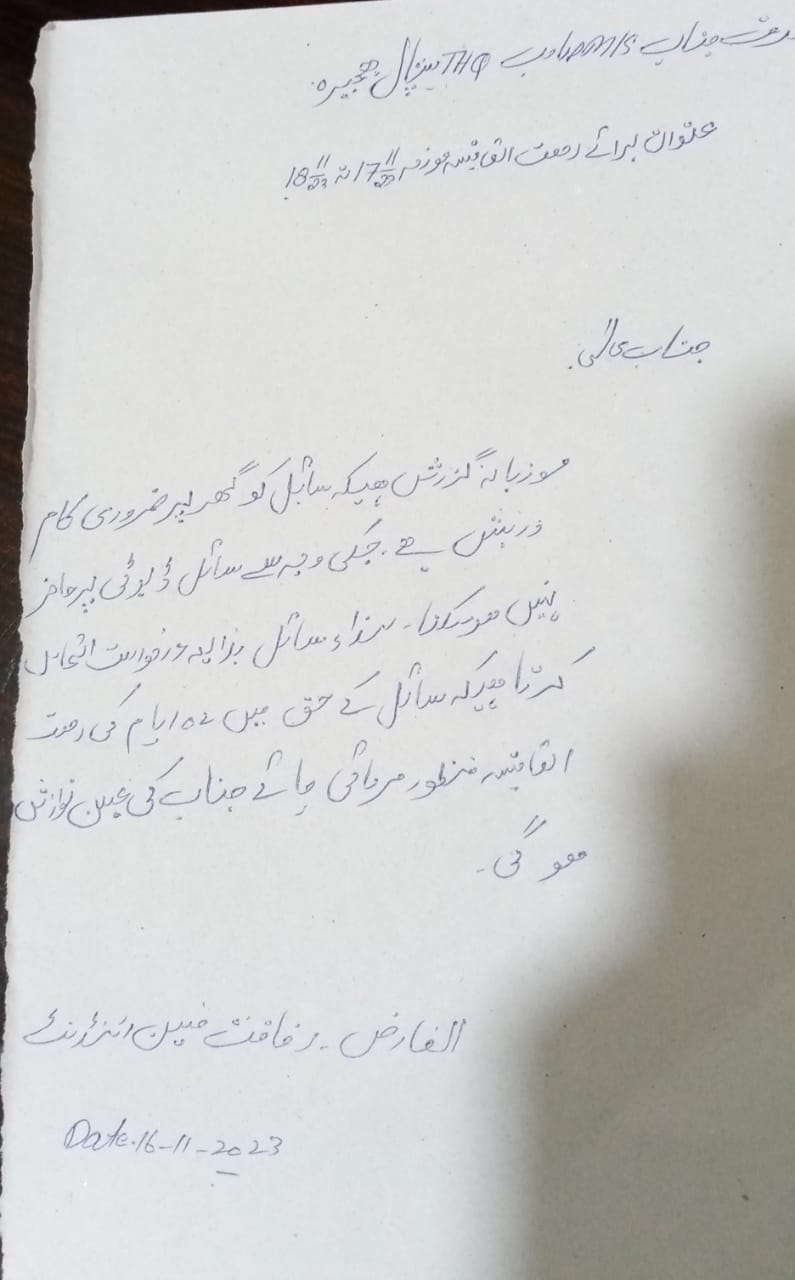 جناب DMS صاحب THQ ہسپتال ہجیرہ
عنوان برائے رخصت اتفاقیہ مورخہ 17/11/23 تا 18/11/23
جناب عالی
موزبانہ گزرش ہیکہ سائل کو گھر پر ضروری کام
درپیش ہے۔ جسکی وجہ سے سائل ڈیوٹی پر حاضر
نہیں ہوسکتا۔ لہذا سائل بذریعہ درخواست التماس
کرتا ہیکہ سائل کے حق میں ایام کی رخصت
اتفاقیہ منظور فرمائی جائے جناب کی عین نوازش
ہو گی۔
العارض۔ رفاقت حسین
Date. 16-11-2023